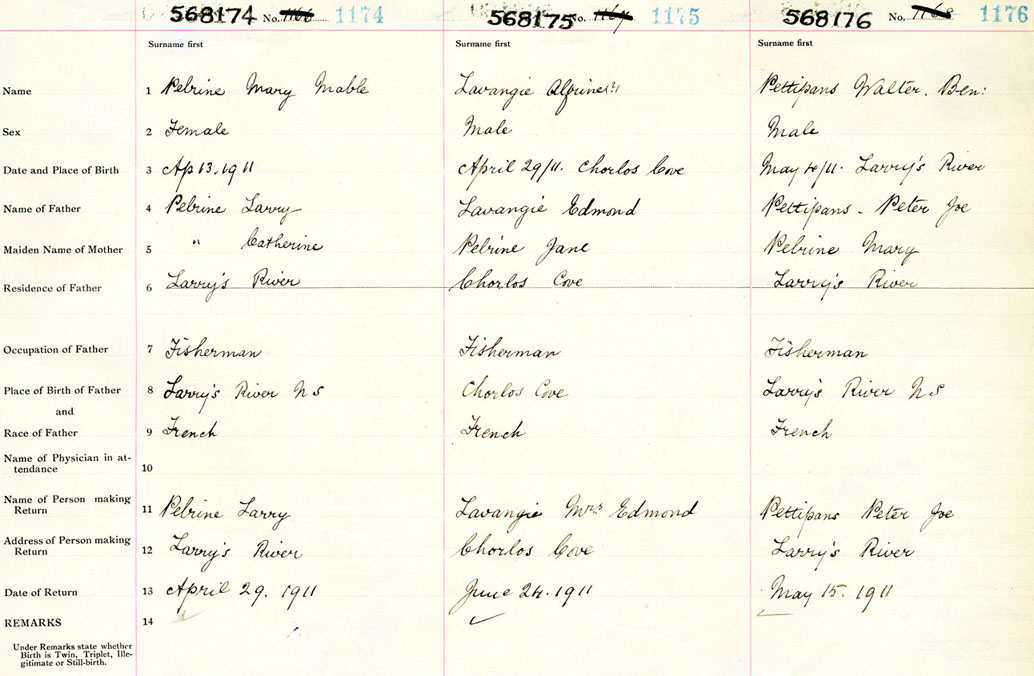 568174 No. 1166 1174 568175 No. 1167 1175 568176 No. 1168 1176
Surname first Surname first Surname first
Name 1 Pelrine Mary Mable Lavangie Pettipans Walter. Ben:
Sex 2 Female Male Male
Date and Place of Birth 3 Ap 13. 1911 April 29/11. Chorlos Cove May /11. Larry's River
Name of Father 4 Pelrine Larry Lavangie Edmond Pettipans - Peter Joe
Maiden Name of Mother 5 " Catherine Pelrine Jane Pelrine Mary
Residence of Father 6 Larry's River Chorlos Cove Larry's River
Occupation of Father 7 Fisherman Fisherman Fisherman
Place of Birth of Father 8 Larry's River N S Chorlos Cove Larry's River N S
and
Race of Father 9 French French French
Name of Physician in at-
tendance 10
Name of Person making
Return 11 Pelrine Larry Lavangie Mrs Edmond Pettipans Peter Joe
Address of Person making
Return 12 Larry's River Chorlos Cove Larry's River
Date of Return 13 April 29. 1911 June 24. 1911 May 15. 1911
REMARKS 14
Under Remarks state whether
Birth is Twin, Triplet, Ille-
gitimate or Still-birth.